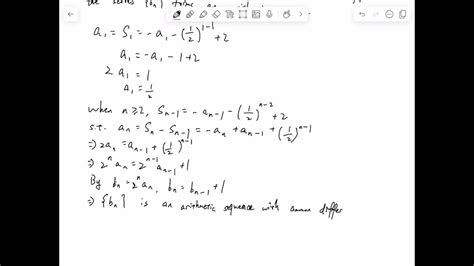 the series {bn} forms an
a₁ = S₁ = -a₁ - (1/2)^(1-1) + 2
a₁ = -a₁ - 1 + 2
2 a₁ = 1
a₁ = 1/2
when n ≥ 2, Sₙ₋₁ = -aₙ₋₁ - (1/2)^(n-2) + 2
s.t. aₙ = Sₙ - Sₙ₋₁ = -aₙ + aₙ₋₁ + (1/2)^(n-1)
⇒ 2aₙ = aₙ₋₁ + (1/2)^(n-1)
⇒ 2ⁿaₙ = 2ⁿ⁻¹aₙ₋₁ + 1
By bₙ = 2ⁿaₙ, bₙ = bₙ₋₁ + 1
⇒ {bₙ} is an arithmetic sequence with differ